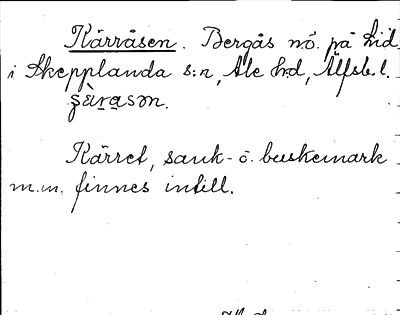 Kärråsen. Bergås nö. på Lid
i Skepplanda s:n, Ale hd, Älfsb. l.
Kärret, sank- o. buskmark
m.m. finnes intill.